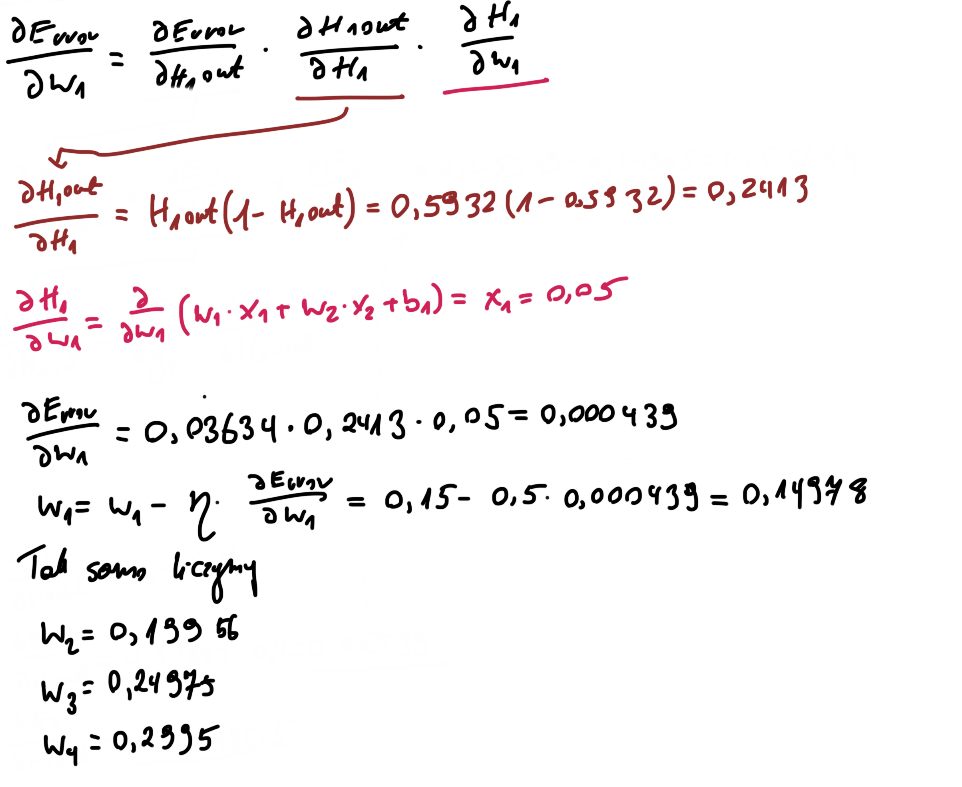 ∂Error/∂w₁ = ∂Error/∂H₁out · ∂H₁out/∂H₁ · ∂H₁/∂w₁
∂H₁out/∂H₁ = H₁out(1 - H₁out) = 0,5932(1 - 0.5932) = 0,2413
∂H₁/∂w₁ = ∂/∂w₁ (w₁·x₁ + w₂·x₂ + b₁) = x₁ = 0,05
∂Error/∂w₁ = 0,03634 · 0,2413 · 0,05 = 0,000439
w₁ = w₁ - η · ∂Error/∂w₁ = 0,15 - 0,5 · 0,000439 = 0,14978
Tak samo liczymy
w₂ = 0,19956
w₃ = 0,24975
w₄ = 0,2995